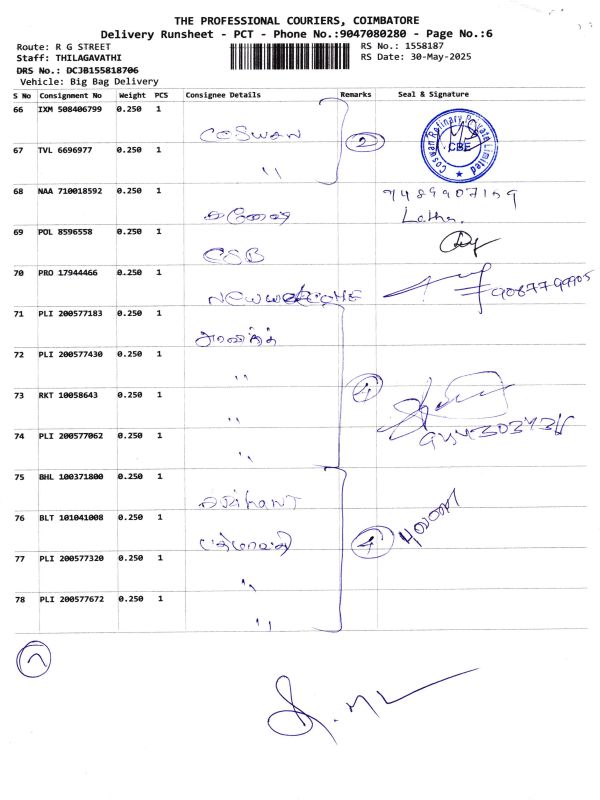 THE PROFESSIONAL COURIERS, COIMBATORE
Delivery Runsheet - PCT - Phone No.:9047080280 - Page No.:6
Route: R G STREET
RS No.: 1558187
Staff: THILAGAVATHI
RS Date: 30-May-2025
DRS No.: DCJB155818706
Vehicle: Big Bag Delivery
S No Consignment No Weight PCS Consignee Details Remarks Seal & Signature
66 IXM 508406799 0.250 1
COSWAN
2
Coswan Refinary Private Limited
CBE
67 TVL 6696977 0.250 1
"
68 NAA 710018592 0.250 1
9489907159
Latha.
69 POL 8596558 0.250 1
CSB
70 PRO 17944466 0.250 1
71 PLI 200577183 0.250 1
72 PLI 200577430 0.250 1
"
4
73 RKT 10058643 0.250 1
"
74 PLI 200577062 0.250 1
"
75 BHL 100371800 0.250 1
76 BLT 101041008 0.250 1
4
77 PLI 200577320 0.250 1
"
78 PLI 200577672 0.250 1
"